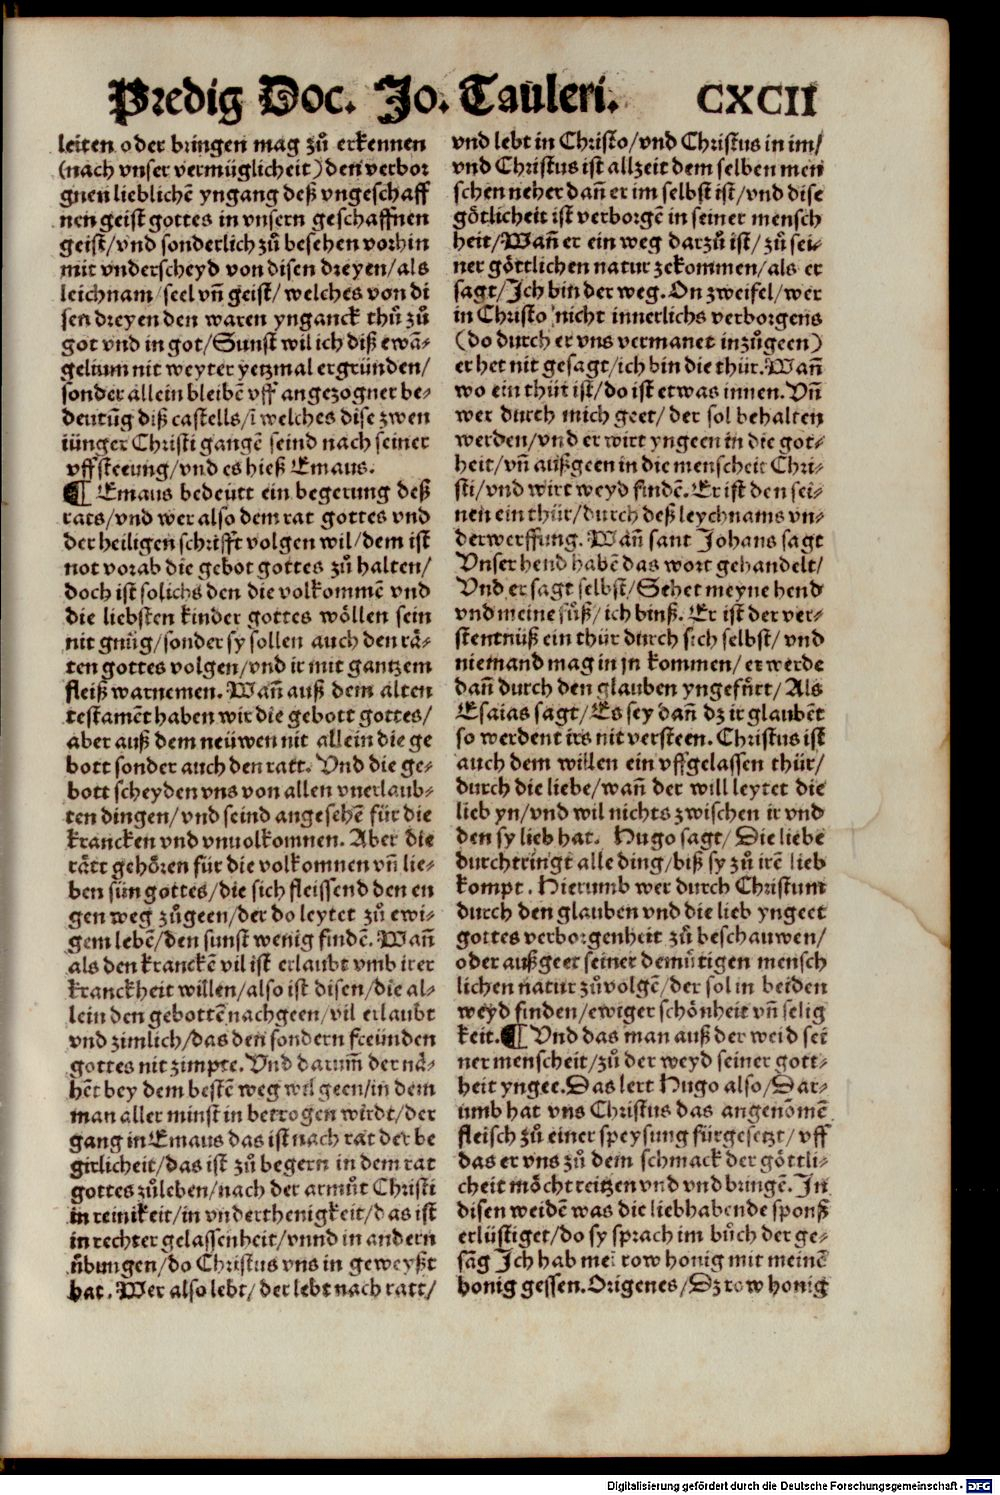 Predig Doc. Jo. Tauleri. CXCII
leiten oder bringen mag zů erkennen
(nach vnser vermüglicheit) den verbor
gnen lieblichē yngang deß vngeschaff
nen geist gottes in vnsern geschaffnen
geist/vnd sonderlich zů besehen vorhin
mit vnderscheyd von disen dreyen/als
leichnam/seel vñ geist/welches von di
sen dreyen den waren ynganck thů zů
got vnd in got/Sunst wil ich diß ewā⸗
gelium nit weyter yetzmal ergründen/
sonder allein bleibē vff angezogner be⸗
deutūg diß castells/ī welches dise zwen
iünger Christi gangē seind nach seiner
vffsteeung/vnd es hieß Emaus.
¶ Emaus bedeütt ein begerung deß
rats/vnd wer also dem rat gottes vnd
der heiligen schrifft volgen wil/dem ist
not vorab die gebot gottes zů halten/
doch ist solichs den die volkommē vnd
die liebsten kinder gottes wöllen sein
nit gnůg/sonder sy sollen auch den rä⸗
ten gottes volgen/vnd ir mit gantzem
fleiß warnemen. Wañ auß dem alten
testamēt haben wir die gebott gottes/
aber auß dem neüwen nit allein die ge
bott sonder auch den ratt. Vnd die ge⸗
bott scheyden vns von allen vnerlaub⸗
ten dingen/vnd seind angesehē für die
krancken vnd vnuolkomnen. Aber die
rätt gehören für die volkomnen vñ lie⸗
ben sün gottes/die sich fleissend den en
gen weg zůgeen/der do leytet zů ewi⸗
gem lebē/den sunst wenig findē. Wañ
als den kranckē vil ist erlaubt vmb irer
kranckheit willen/also ist disen/die al⸗
lein den gebottē nachgeen/vil erlaubt
vnd zimlich/das den sondern freünden
gottes nit zimpte. Vnd darum̄ der nä⸗
hēt bey dem bestē weg wil geen/in dem
man aller minst in betrogen wirdt/der
gang in Emaus das ist nach rat der be
girlicheit/das ist zů begern in dem rat
gottes zůleben/nach der armůt Christi
in reinikeit/in vnderthenigkeit/das ist
in rechter gelassenheit/vnnd in andern
übungen/do Christus vns in geweyßt
hat. Wer also lebt/der lebt nach ratt/
vnd lebt in Christo/vnd Christus in im/
vnd Christus ist allzeit dem selben men
schen neher dañ er im selbst ist/vnd dise
götlicheit ist verborgē in seiner mensch
heit/Wañ er ein weg darzů ist/zů sei⸗
ner göttlichen natur zekommen/als er
sagt/Ich bin der weg. On zweifel/wer
in Christo nicht innerlichs verborgens
(do durch er vns vermanet inzůgeen)
er het nit gesagt/ich bin die thür. Wañ
wo ein thür ist/do ist etwas innen. Vñ
wer durch mich geet/der sol behalten
werden/vnd er wirt yngeen in die got⸗
heit/vñ außgeen in die menscheit Chri⸗
sti/vnd wirt weyd findē. Er ist den sei⸗
nen ein thür/durch deß leychnams vn⸗
derwerffung. Wañ sant Johans sagt
Vnser hend habē das wort gehandelt/
Vnd er sagt selbst/Sehet meyne hend
vnd meine füß/ich binß. Er ist der ver⸗
stentnüß ein thür durch sich selbst/vnd
niemand mag in jn kommen/er werde
dañ durch den glauben yngefürt/Als
Esaias sagt/Es sey dañ dz ir glaubēt
so werdent irs nit versteen. Christus ist
auch dem willen ein vffgelassen thür/
durch die liebe/wañ der will leytet die
lieb yn/vnd wil nichts zwischen ir vnd
den sy lieb hat. Hugo sagt/Die liebe
durchtringt alle ding/biß sy zů irē lieb
kompt. Hierumb wer durch Christum
durch den glauben vnd die lieb yngeet
gottes verborgenheit zů beschauwen/
oder außgeet seiner demütigen mensch
lichen natur zůvolgē/der sol in beiden
weyd finden/ewiger schönheit vñ selig
keit. ¶ Vnd das man auß der weid sei
ner menscheit/zů der weyd seiner gott⸗
heit yngee. Das lert Hugo also/Dar⸗
umb hat vns Christus das angenōmē
fleisch zů einer speysung fürgesetzt/vff
das er vns zů dem schmack der göttli⸗
cheit möcht reitzen vnd vnd bringē. In
disen weidē was die liebhabende sponß
erlüstiget/do sy sprach im bůch der ge⸗
sāg Ich hab mei row honig mit meinē
honig gessen. Origenes/Dz row honig
Digitalisierung gefördert durch die Deutsche Forschungsgemeinschaft - DFG